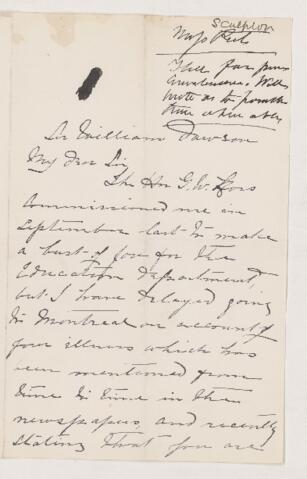 Sculptor
Miss
Sir William Dawson
My Dear Sir
The Hon G. W. Ross
Commissioned me in
September last to make
a bust of you for the
Education Department,
but I have delayed going
to Montreal on account of
your illness which has
been mentioned from
time to time in the
newspapers, and recently
stating that you are